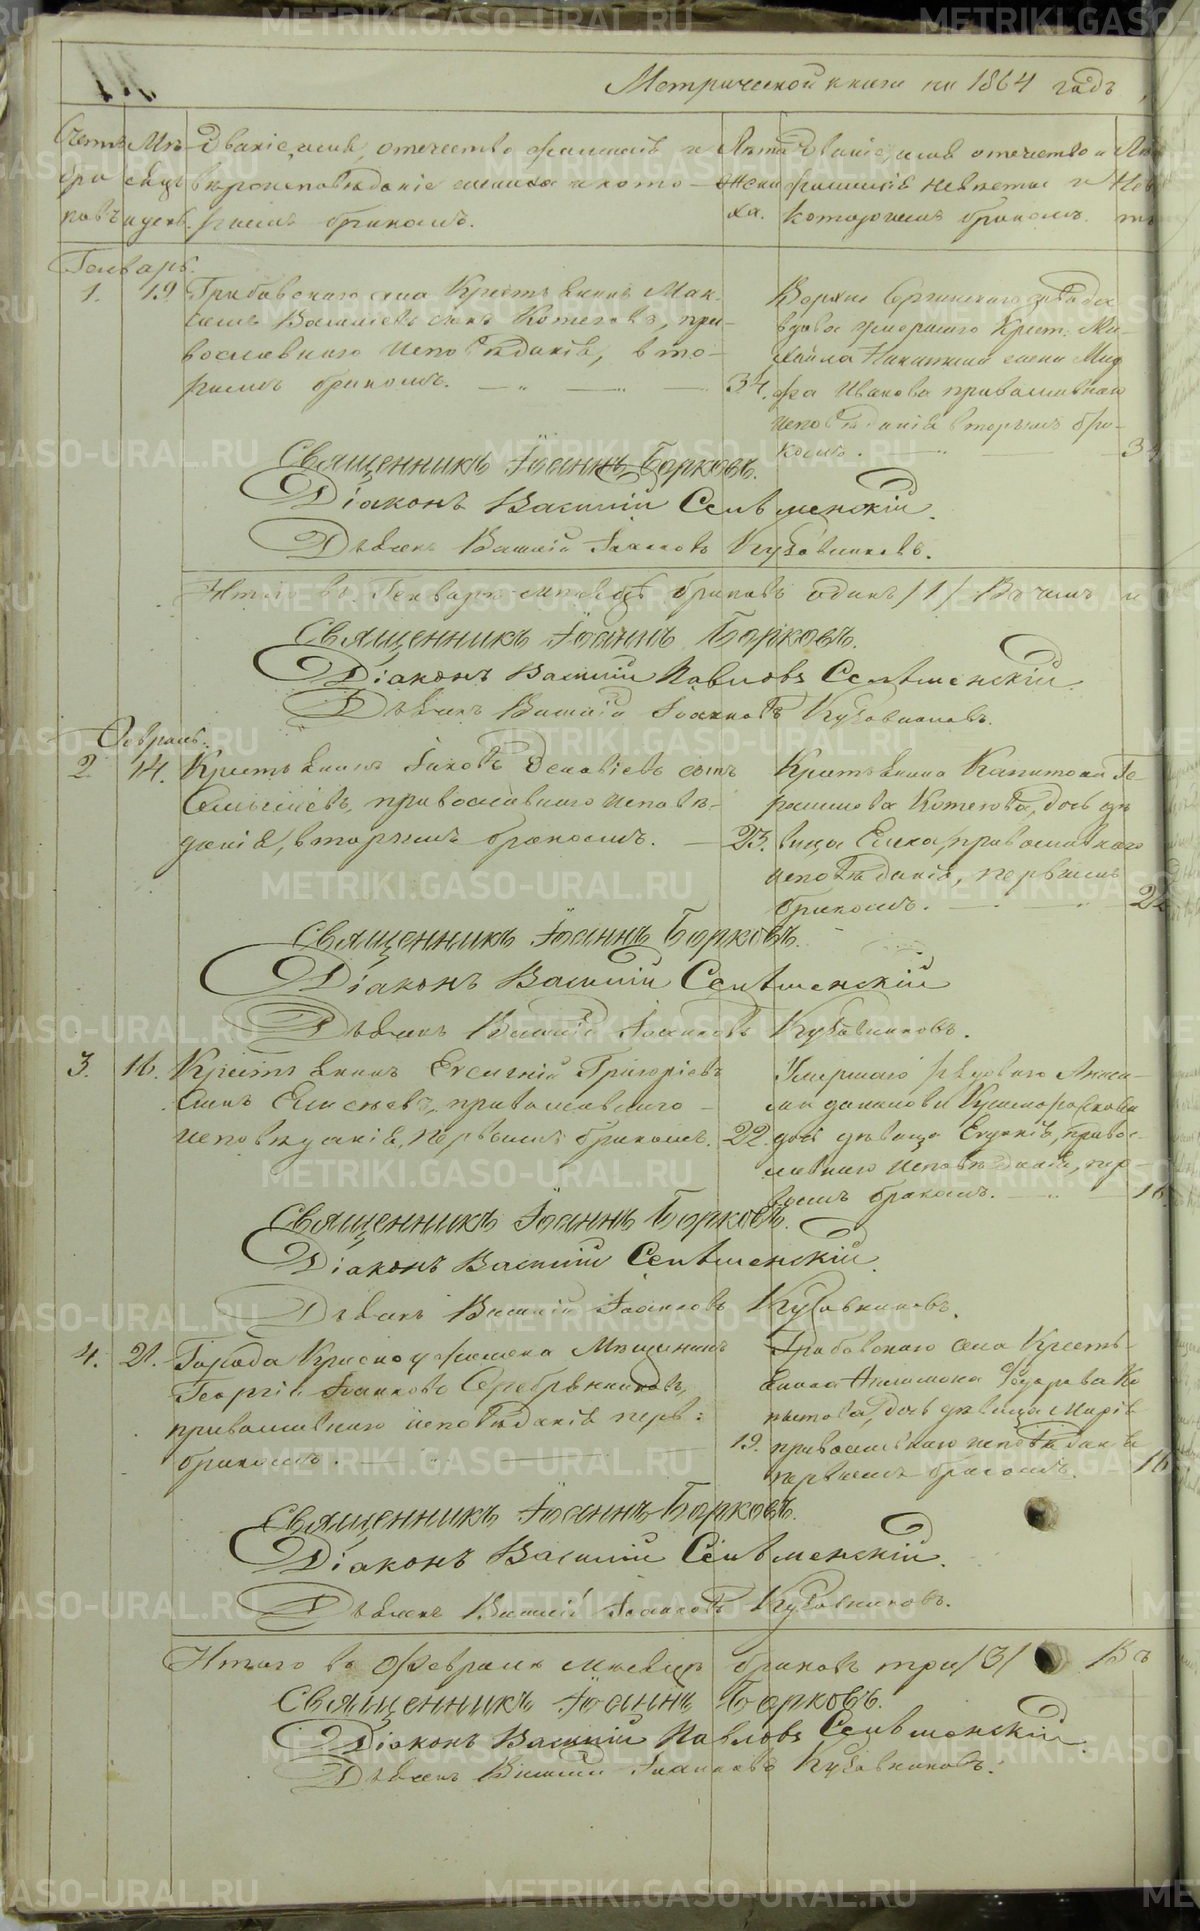 Метрической книги на 1864 годъ
Счетъ бра ковъ
Мѣ сяцъ и день.
Званіе, имя, отечество фамилія и
вѣроисповѣданіе жениха и кото-
рымъ бракомъ.
Лѣта жени ха.
Званіе, имя отечество и
фамилія невѣсты и
которымъ бракомъ.
Генварь.
1. 19 Грибовскаго села Крестьянинъ Мак-
симъ Васильевъ сынъ Котеговъ, пра-
вославнаго исповѣданія, вто-
рымъ бракомъ. 34.
Верхне Сергинскаго завода
вдова умершаго Крест. Ми-
хайла
Иванова православнаго
исповѣданія вторымъ бра-
комъ. 34
Священникъ Іоаннъ Борковъ.
Діаконъ Василій Селѣменскій.
Дьячекъ Василій Іоанновъ Кубовниковъ.
Итого въ Генварѣ мѣсяцѣ браковъ одинъ /1/ Въ чемъ и
Священникъ Іоаннъ Борковъ.
Діаконъ Василій Павловъ Селѣменскій.
Дьячекъ Василій Іоанновъ Кубовниковъ.
Февраль.
2 14. Крестьянинъ Іаковъ сынъ
православнаго исповѣ-
данія, вторымъ бракомъ. 23.
Крестьянина Капитона Ге-
расимова Котегова, дочь дѣ-
вица Елена, православнаго
исповѣданія, первымъ
бракомъ. 22
Священникъ Іоаннъ Борковъ.
Діаконъ Василій Селѣменскій
Дьячекъ Василій Іоанновъ Кубовниковъ.
3. 16. Крестьянинъ Евсигній Григоріевъ
сынъ Елисѣевъ, православнаго
исповѣданія, первымъ бракомъ. 22.
Умершаго рядоваго
дочь дѣвица Евдокія, право-
славнаго исповѣданія, пер-
вымъ бракомъ. 16.
Священникъ Іоаннъ Борковъ.
Діаконъ Василій Селѣменскій.
Дьячекъ Василій Іоанновъ Кубовниковъ.
4. 21. Города Красноуфимска Мѣщанинъ
Георгій Іоанновъ Серебрянниковъ,
православнаго исповѣданія перв:
бракомъ. 19.
Грибовскаго села Кресть-
янина
дочь дѣвица Марія
православнаго исповѣданія
первымъ бракомъ. 16
Священникъ Іоаннъ Борковъ.
Діаконъ Василій Селѣменскій.
Дьячекъ Василій Іоанновъ Кубовниковъ.
Итого въ Февралѣ мѣсяцѣ браковъ три /3/ Въ
Священникъ Іоаннъ Борковъ.
Діаконъ Василій Павловъ Селѣменскій.
Дьячекъ Василій Іоанновъ Кубовниковъ.
METRIKI.GASO-URAL.RU